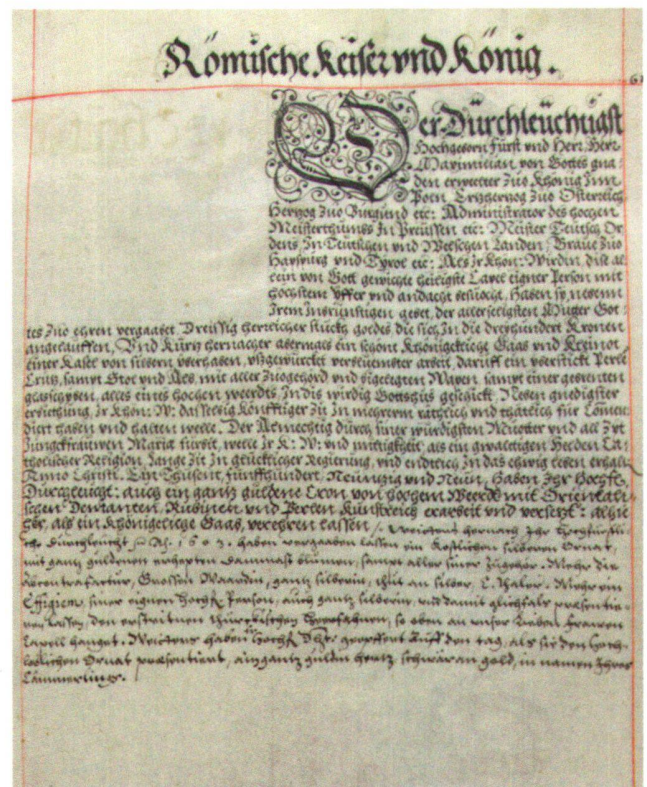 Römische Keiser vnd König.
Der Dürchleüchtigst
Hochgeborn Fürst vnd Herr, Herr
Maximilian von Gottes gna¬
den erwelter Zuo Khönig Inn
Polen Ertzherzog Zuo Österreich
Herzog Zuo Burgund etc: Administrator des hochen
Meisterthumbs In Preüssen etc: Meister Teütsch Or
dens, In Teütschen vnd Welschen Landen, Graue Zuo
Hapspurg vnd Tyrol etc: Als Ir Khön: Wirdin, dise al
lein von Gott gewichte heiligste Capel eigner Person mit
höchstem yffer vnd andacht besuocht, Haben sy nebent
Irem Inbrünstigen gebet, der allerseligisten Muoter Got¬
tes Zuo ehren vergaabet Dreissig herrlicher stückh goldes die sich In die dreyhundert Kronen
angelauffen, Vnd kürtz hernacher abermals ein schönt Khönigkliche Gaab vnd Kleinot
einer Kasel von silbern vberhaben, vßgewürckt verbluembter arbeit, daruff ein yberstickt Perle
Crütz, sampt Stol vnd Alb, mit aller Zuogehörd vnd
alles eines hochen weerdts, In dis wirdig Gottshus geschickt, Neben gnedigster
Ir Khön: W: dasselbig Künfftiger Zit In mehrerm räthlich vnd thätlich für
diert haben vnd halten welle. Der Allmechtig durch siner würdigsten Muotter vnd all Zyt
Jungkfrauwen Maria fürbit, welle Ir K: W: vnd als ein gwaltigen Helden Ca
tholischer Religion lange Zit In glücklicher Regierung, vnd endtlich In das ewig leben erhalt
Anno Christi. Ein Thusent, fünffhundert, Neünzig vnd Neün, Haben Ihr Hochf:
Dürchleucht: auch ein gantz guldene Cron von hochem Weerdt mit Orientali¬
schen Demanten, Rubinen vnd Perlen Künstreich erarbeit vnd versetzt: alhie
als ein Khönigkliche Gaab, verehren lassen. Weitters hernach Ihr Hochfürstli¬
che Durchleucht Aō. 1603. haben vergaaben lassen ein Köstlichen silberen Ornat,
mit gantz guldenen erhepten Dammast bluomen, sampt aller siner Zugehör. Mehr die
gantz silberin, thut an silber Mehr ein
Effigiem, siner eignen Hochf: Person, auch gantz silberin, vnd damit glichfals praesentie¬
ren lassen, den so oben an vnser Lieben Frauwen
Capell hanget. Weitters haben Hochf: vff den tag, als sie den Hoch¬
loblichen Ornat praesentiert, ein gantz gulden schwär an gold, in namen Ihres
Cämmerlings.